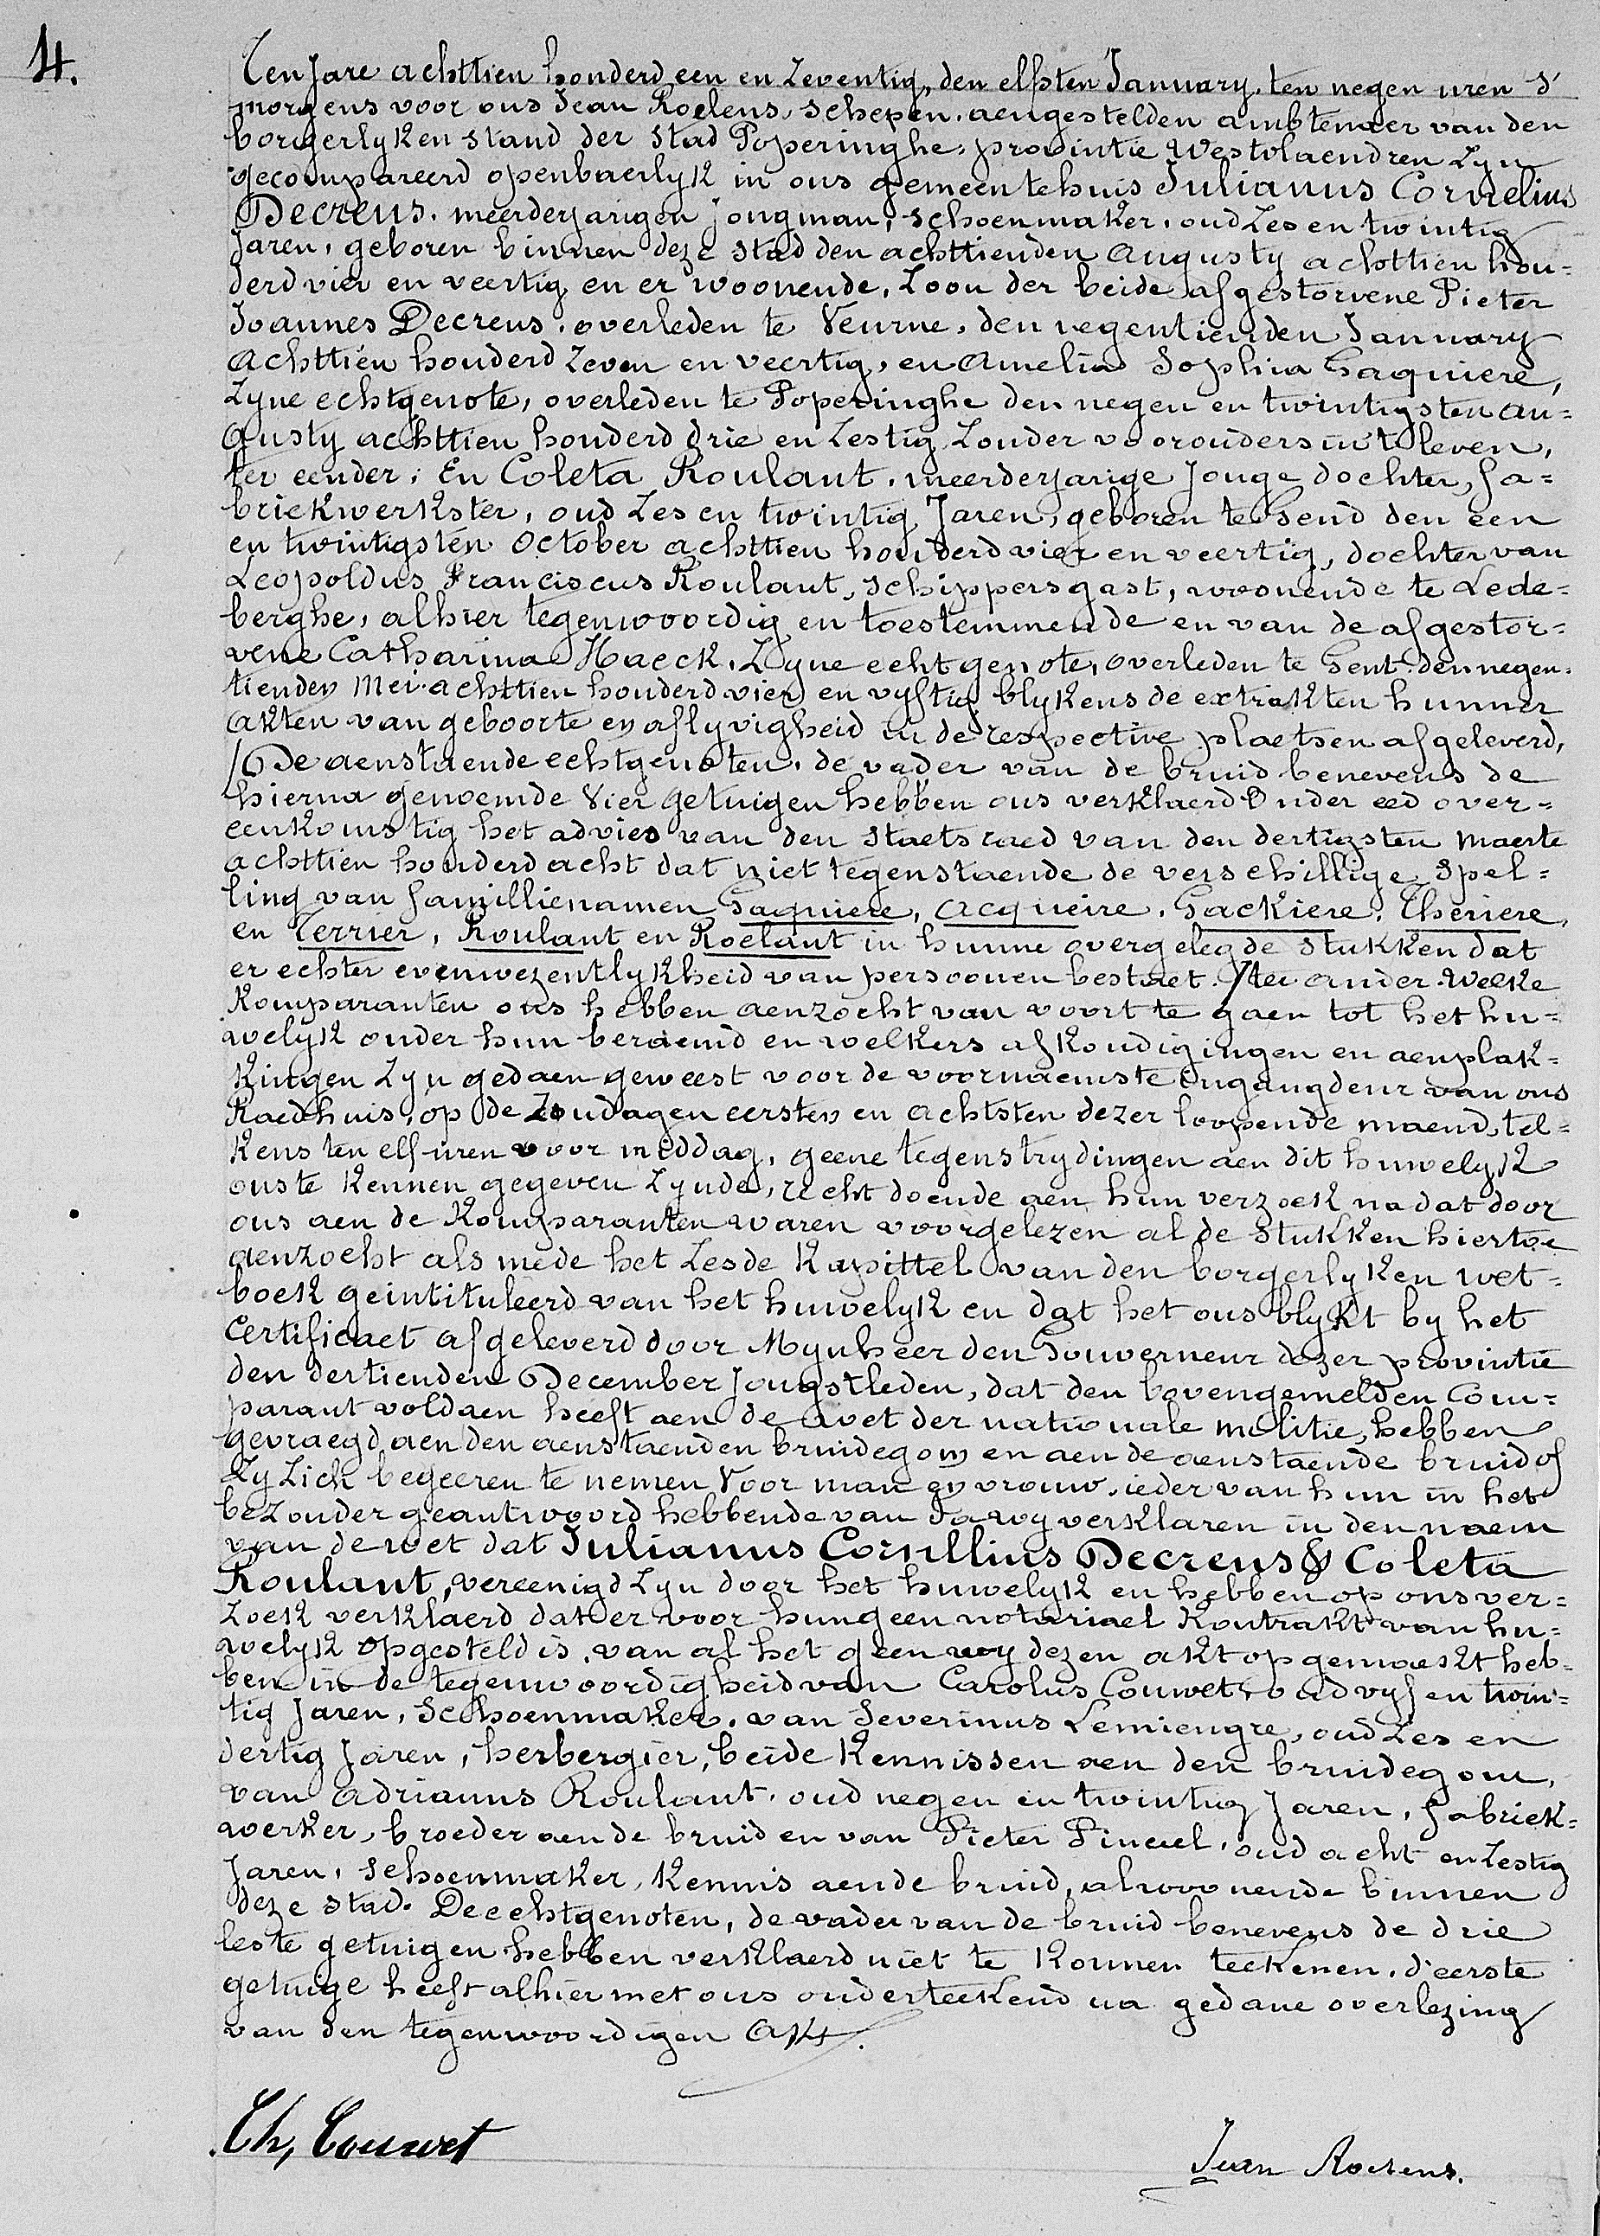 4.
Ten Jare achttien honderd een en Zeventig, den elfsten January ten negen uren s'
morgens voor ons Jean Roelens, schepen, aengestelden ambtenaer van den
borgerlyken stand der stad Poperinghe, provintie Westvlaendren Zyn
gecompareerd openbaerlyk in ons gemeentehuis Julianus Cornelius
Decreus, meerderjarigen jongman, schoenmaker, oud Zes en twintig
Jaren, geboren binnen deze stad den achttienden Augusty achttien hon=
derd vier en veertig en er woonende, Zoon der beide afgestorvene Pieter
Joannes Decreus, overleden te Veurne, den negentienden January
Achttien honderd Zeven en veertig, en Amelia Sophia Gaquiere,
Zyne echtgenote, overleden te Poperinghe den negen en twintigsten au=
Gusty achttien honderd drie en Zestig, Zonder voorouders in 't leven,
ter eender; En Coleta Roulant, meerderjarige Jonge dochter, fa=
briekwerkster, oud Zes en twintig Jaren, geboren te Gend den een
en twintigsten October achttien honderd vier en veertig, dochter van
Leopoldus Franciscus Roulant, Schippersgast, woonende te Lede=
berghe, alhier tegenwoordig en toestemmende en van de afgestor=
vene Catharina Haeck, Zyne echtgenote, overleden te Gent den negen=
tienden Mei achttien honderd vier en vyftig blykens de extrakten hunner
Akten van geboorte en aflyvigheid in de respective plaetsen afgeleverd,
/ De aenstaende echtgenoten, de vader van de bruid benevens de
hierna genoemde Vier getuigen hebben ons verklaerd Onder eed over=
eenkomstig het advies van den staetsraed van den dertigsten maerte
achttien honderd acht dat niet tegenstaende de verschillige Spel=
ling van famillienamen Gaquiere, Acqueire, Gackiere, Theriere,
en Terrier, Roulant en Roelant in hunne overgelegde stukken dat
er echter evenwezentlykheid van persoonen bestaet. / ter ander. Welke
Komparanten ons hebben aenzocht van voort te gaen tot het hu=
welyk onder hun beraemd en welkers afkondigingen en aenplak=
kingen Zyn gedaen geweest voor de voornaemste ingangdeur van ons
Raedhuis, op de Zondagen eersten en achtsten dezer loopende maend, tel=
kens ten elf uren voor middag, geene tegenstrydingen aen dit huwelyk
ons te kennen gegeven Zynde, recht doende aen hun verzoek na dat door
ons aen de Komparanten waren voorgelezen al de Stukken hiertoe
aenzocht als mede het Zesde Kapittel van den borgerlyken wet=
boek geintituleerd van het huwelyk en dat het ons blykt by het
Certificaet afgeleverd door Mynheer den Gouverneur dezer provintie
den dertienden December Jongstleden, dat den bovengemelden Com=
parant voldaen heeft aen de wet der nationale melitie, hebben
gevraegd aen den aenstaenden bruidegom en aen de aenstaende bruid of
Zy Zich begeeren te nemen Voor man en vrouw, ieder van hun in het
beZonder geantwoord hebbende van Ja wy verklaren in den naem
van de wet dat Julianus Cornillius Decreus & Coleta
Roulant, vereenigd Zyn door het huwelyk en hebben op ons ver=
Zoek verklaerd dat er voor hun geen notariael Kontrakt van hu=
welyk opgesteld is, van al het geen wy dezen akt opgemaekt heb=
ben in de tegenwoordigheid van Carolus Couwet, oud vyf en twin=
tig Jaren, Schoenmaker, van Severinus Lemiengre, oud Zes en
dertig Jaren, herbergier, beide Kennissen aen den bruidegom,
van Adrianus Roulant, oud negen en twintig Jaren, fabriek=
werker, broeder aen de bruid en van Pieter Pineel, oud acht en Zestig
Jaren, Schoenmaker, Kennis aen de bruid, al woonende binnen
deze stad. De echtgenoten, de vader van de bruid benevens de drie
leste getuigen hebben verklaerd niet te konnen teekenen, d'eerste
getuige heeft alhier met ons onderteekend na gedane overlezing
van den tegenwoordigen Akt.
Ch, Couwet
Jean Roelens.